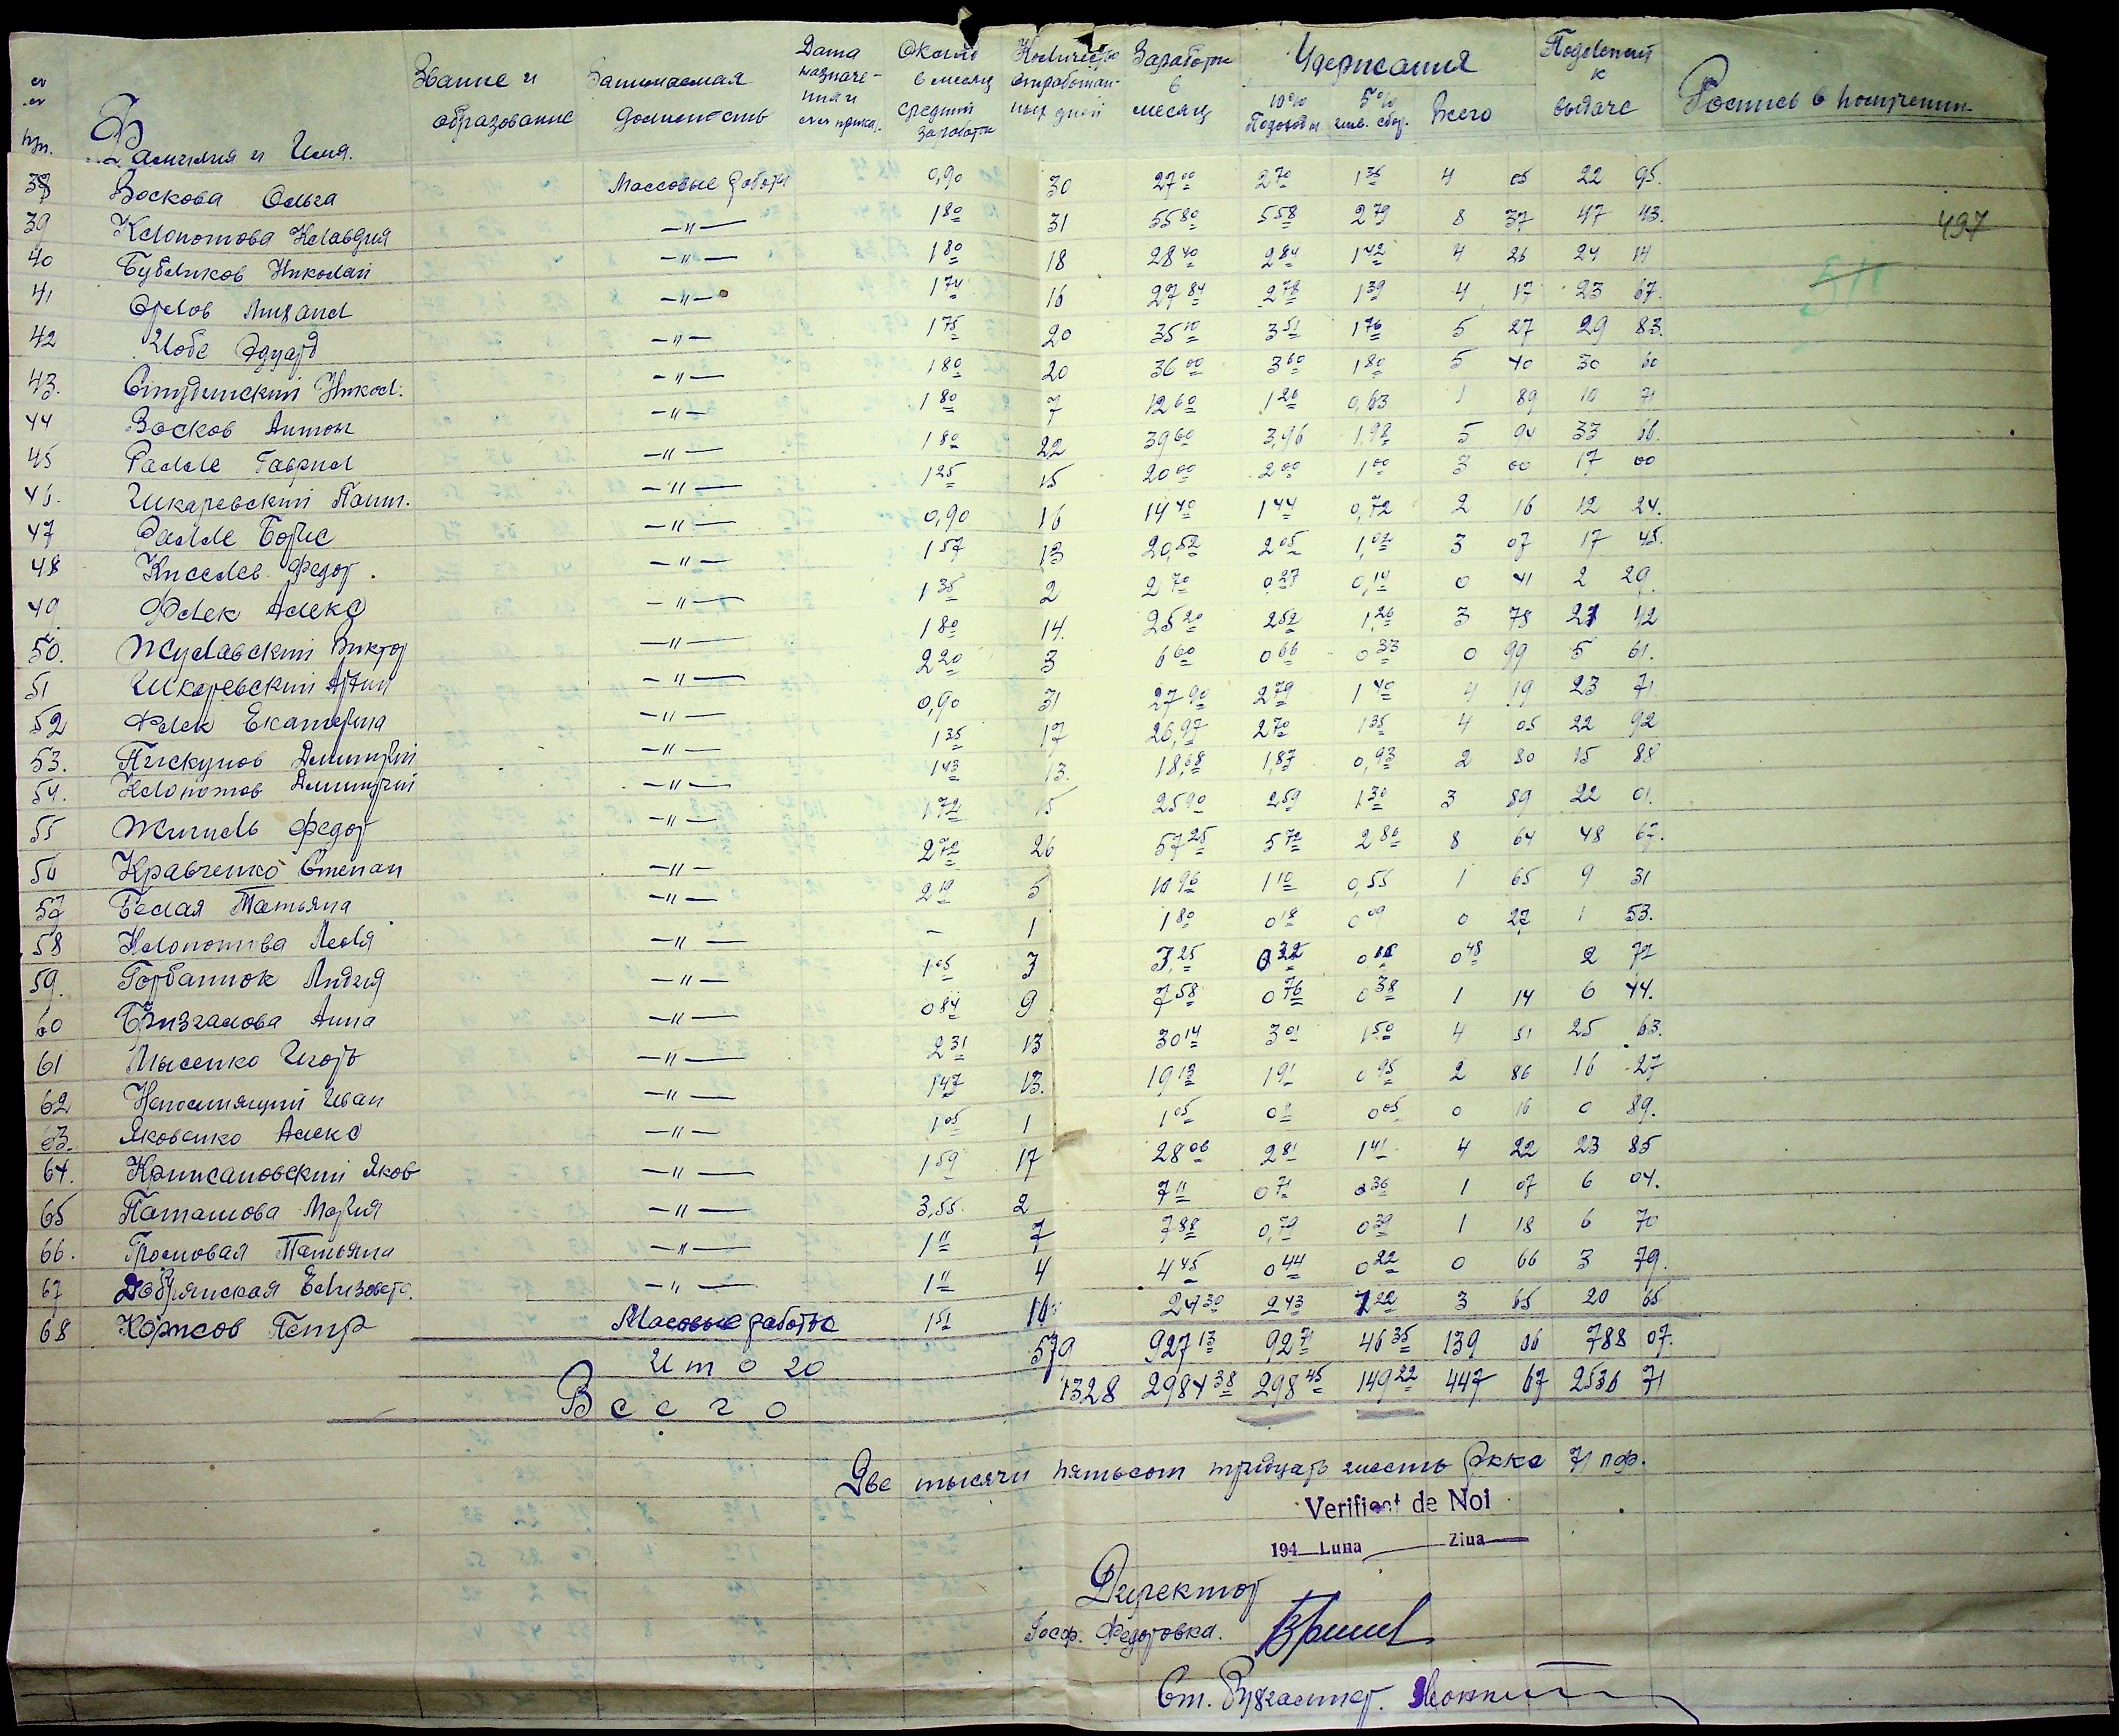 Фамилия и Имя. Звание и образование Занимаемая должность Дата назначения Оклад в месяц средний заработок Количество отработанных дней Заработок в месяц Удержания 10% Подоходн 5% Всего Подлежит к выдаче Роспись в получении
38 Воскова Ольга Массовые работы 0,90 30 27 00 2 70 1 35 4 05 22 95.
39 Клопотова Клавдия —"— 1 80 31 55 80 5 58 2 79 8 37 47 43.
497
40 Бубликов Николай —"— 1 80 18 28 40 2 84 1 42 4 26 24 14
41 Орлов —"— 1 74 16 27 84 2 78 1 39 4 17 23 67.
42 Эдуард —"— 1 75 20 35 10 3 51 1 76 5 27 29 83.
43. Студинский Никол. —"— 1 80 20 36 00 3 60 1 80 5 40 30 60
44 Восков Антон —"— 1 80 7 12 60 1 26 0,63 1 89 10 71
45 Ралле Гаврил —"— 1 80 22 39 60 3,96 1,98 5 94 33 66.
46. Шкаревский —"— 1 25 15 20 00 2 00 1 00 3 00 17 00
47 Ралле Борис —"— 0,90 16 14 40 1 44 0,72 2 16 12 24.
48 Киселев Федор. —"— 1 57 13 20,52 2 05 1,02 3 07 17 45.
49. Флек Алекс —"— 1 35 2 2 70 0 27 0,14 0 41 2 29.
50. Жулавский Виктор —"— 1 80 14. 25 20 2 52 1,26 3 78 21 42
51 Шкаревский —"— 2 20 3 6 60 0 66 0 33 0 99 5 61.
52 Флек Екатерина —"— 0,90 31 27 90 2 79 1 40 4 19 23 71.
53. Пискунов Димитрий —"— 1 35 17 26,97 2 70 1 35 4 05 22 92
54. Клопотов Димитрий —"— 1 43 13. 18,68 1,87 0,93 2 80 15 88
55 Жигиль Федор —"— 1 72 15 25 90 2 59 1 30 3 89 22 01.
56 Кравченко Степан —"— 2 70 26 57 25 5 72 2 86 8 64 48 67.
57 Белая Татьяна —"— 2 19 5 10 96 1 10 0,55 1 65 9 31
58 Клопотова Леся —"— – 1 1 80 0 18 0 09 0 27 1 53.
59. Горбатюк Лидия —"— 1 05 3 3,25 0 32 0 16 0 48 2 77
60 Анна —"— 0 84 9 7 58 0 76 0 38 1 14 6 44.
61 Лысенко Игорь —"— 2 31 13 30 14 3 01 1 50 4 51 25 63.
62 Непомнящий Иван —"— 1 47 13. 19 13 1 91 0 95 2 86 16 27
63. Яковенко Алекс —"— 1 05 1 1 05 0 11 0 05 0 16 0 89.
64. Крписановский Яков —"— 1 59 17 28 06 2 81 1 41 4 22 23 85
65 Паташова Мария —"— 3,55. 2 7 11 0 71 0 36 1 07 6 04.
66. Громовая Татьяна —"— 1 11 7 7 88 0,79 0 39 1 18 6 70
67 Добрянская Елизавета. —"— 1 11 4 4 45 0 44 0 22 0 66 3 79.
68 Корисов Петр Массовые работы 1 51 16 24 30 2 43 1 22 3 65 20 65
Итого 579 927 13 92 71 46 35 139 06 788 07.
Всего 1328 2984 38 298 45 149 22 447 67 2536 71
Две тысячи пятьсот тридцать шесть Рккс 71 пф.
Verificat de Noi
194 Luna Ziua
Директор
Госф. Федоровка.
Ст. Бухгалтер.